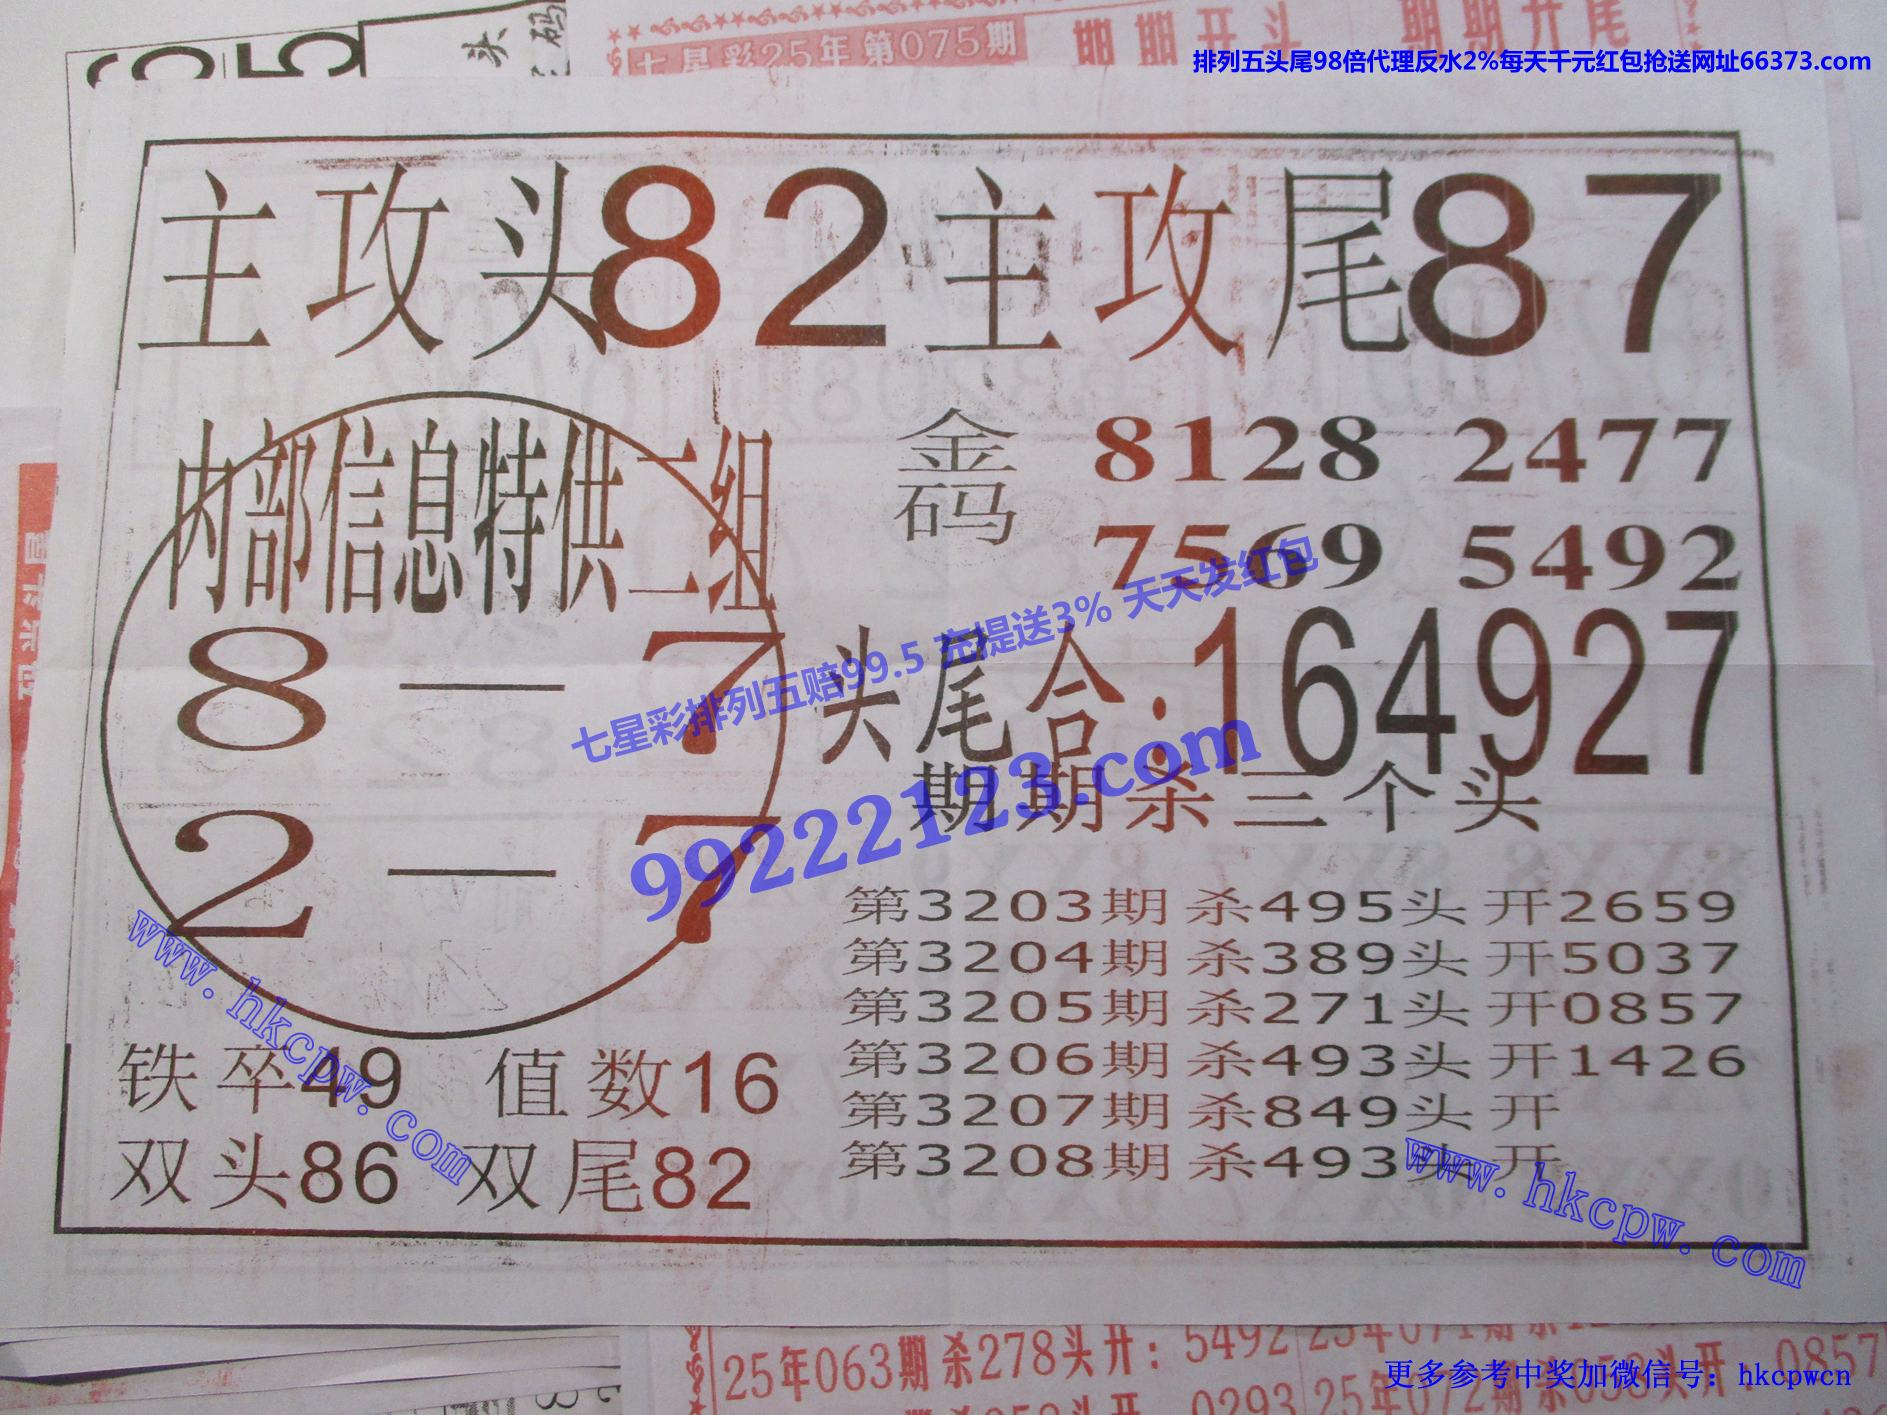 头
码
七星彩25年第075期
期期开头
期期开尾
排列五头尾98倍代理反水2%每天千元红包抢送网址66373.com
主攻头82主攻尾87
内部信息特供二组
8—7
2—7
金码
8128 2477
7569 5492
七星彩排列五赔99.5 充提送3% 天天发红包
99222123.com
头尾合:164927
期期杀三个头
第3203期杀495头开2659
第3204期杀389头开5037
第3205期杀271头开0857
第3206期杀493头开1426
第3207期杀849头开
第3208期杀493头开
www.hkcpw.com
铁卒49 值数16
双头86 双尾82
www.hkcpw.com
25年063期杀278头开:5492
25年071期杀
0293
25年072期杀053头开:0857
更多参考中奖加微信号:hkcpwcn